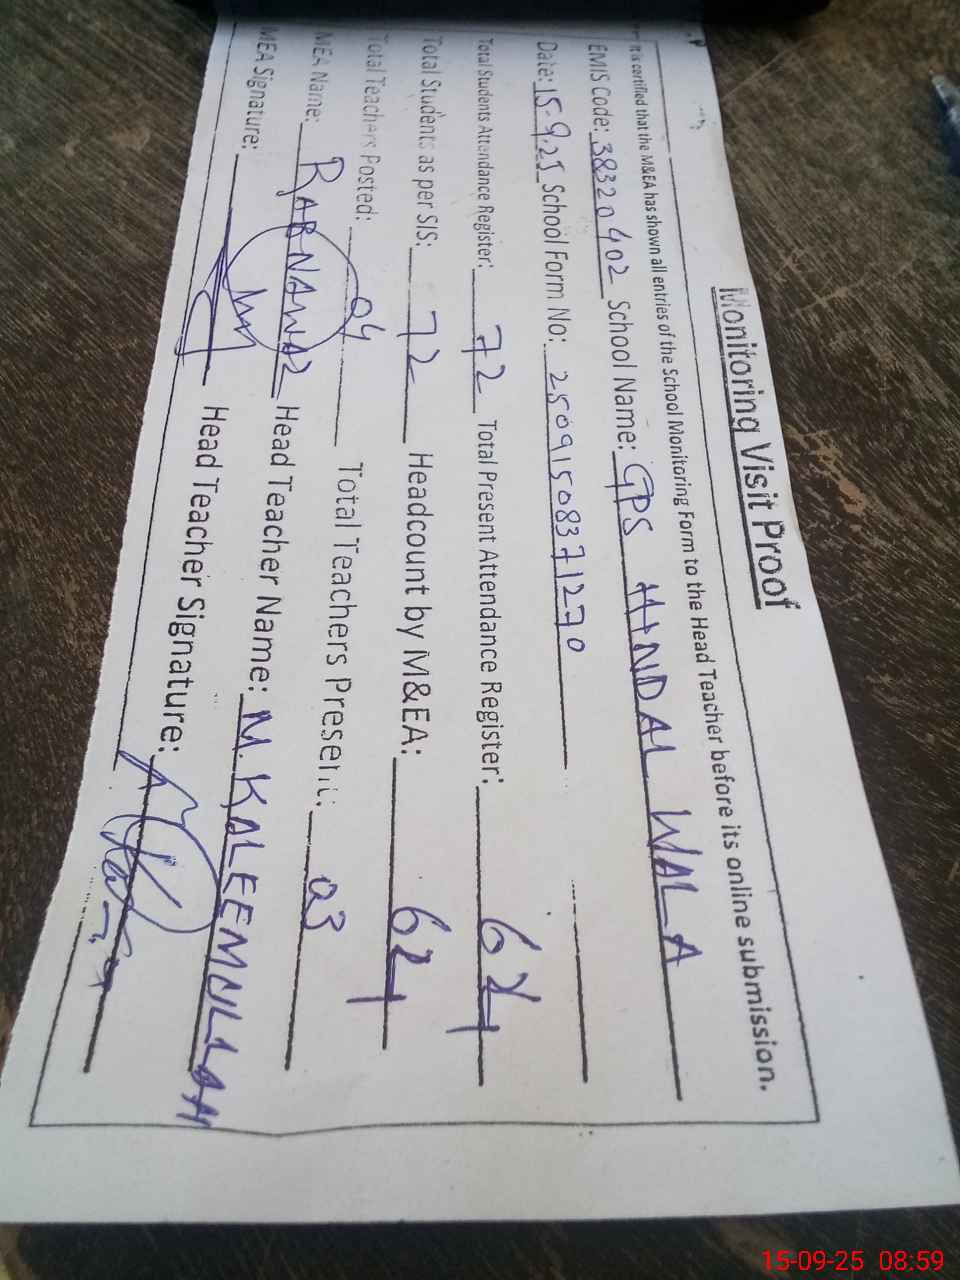 Monitoring Visit Proof
It is certified that the M&EA has shown all entries of the School Monitoring Form to the Head Teacher before its online submission.
EMIS Code: 38320402 School Name: GPS HINDAL WALA
Date: 15-9-25 School Form No: 25091508371270
Total Students Attendance Register: 72 Total Present Attendance Register:
Total Students as per SIS: 72 Headcount by M&EA:
Total Teachers Posted: 04 Total Teachers Present: 03
MEA Name: RAB NAWAZ Head Teacher Name: M. KALEEMULLAH
MEA Signature: Head Teacher Signature:
15-09-25 08:59